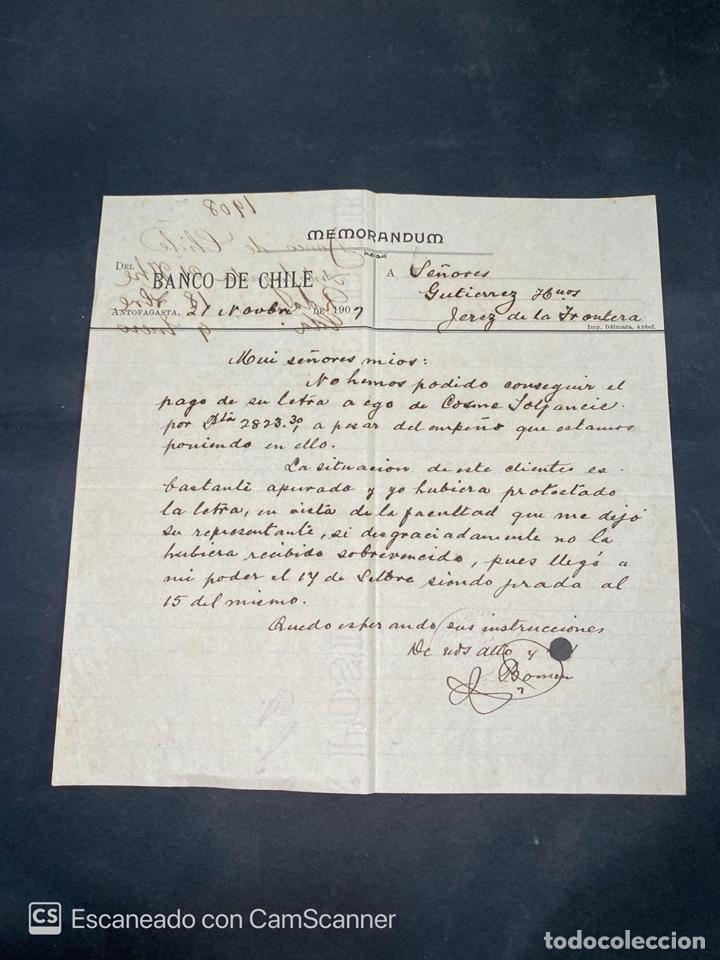 1908
MEMORANDUM
DEL BANCO DE CHILE
ANTOFAGASTA, 21 Novbre DE 1907
A Señores
Gutierrez Hnos
Jerez de la Frontera
Imp. Dálmata, Antof.
Mui señores mios:
No hemos podido conseguir el
pago de su letra a cgo de Cosme
por Pta 2823.30, a pesar del empeño que estamos
poniendo en ello.
La situacion de este cliente es
bastante apurada y yo hubiera protestado
la letra, en vista de la facultad que me dejó
su representante, si desgraciadamente no la
hubiera recibido sobrevencido, pues llegó a
mi poder el 17 de Setbre siendo girada al
15 del mismo.
Quedo esperando sus instrucciones
De uds atto y
CS Escaneado con CamScanner
todocoleccion